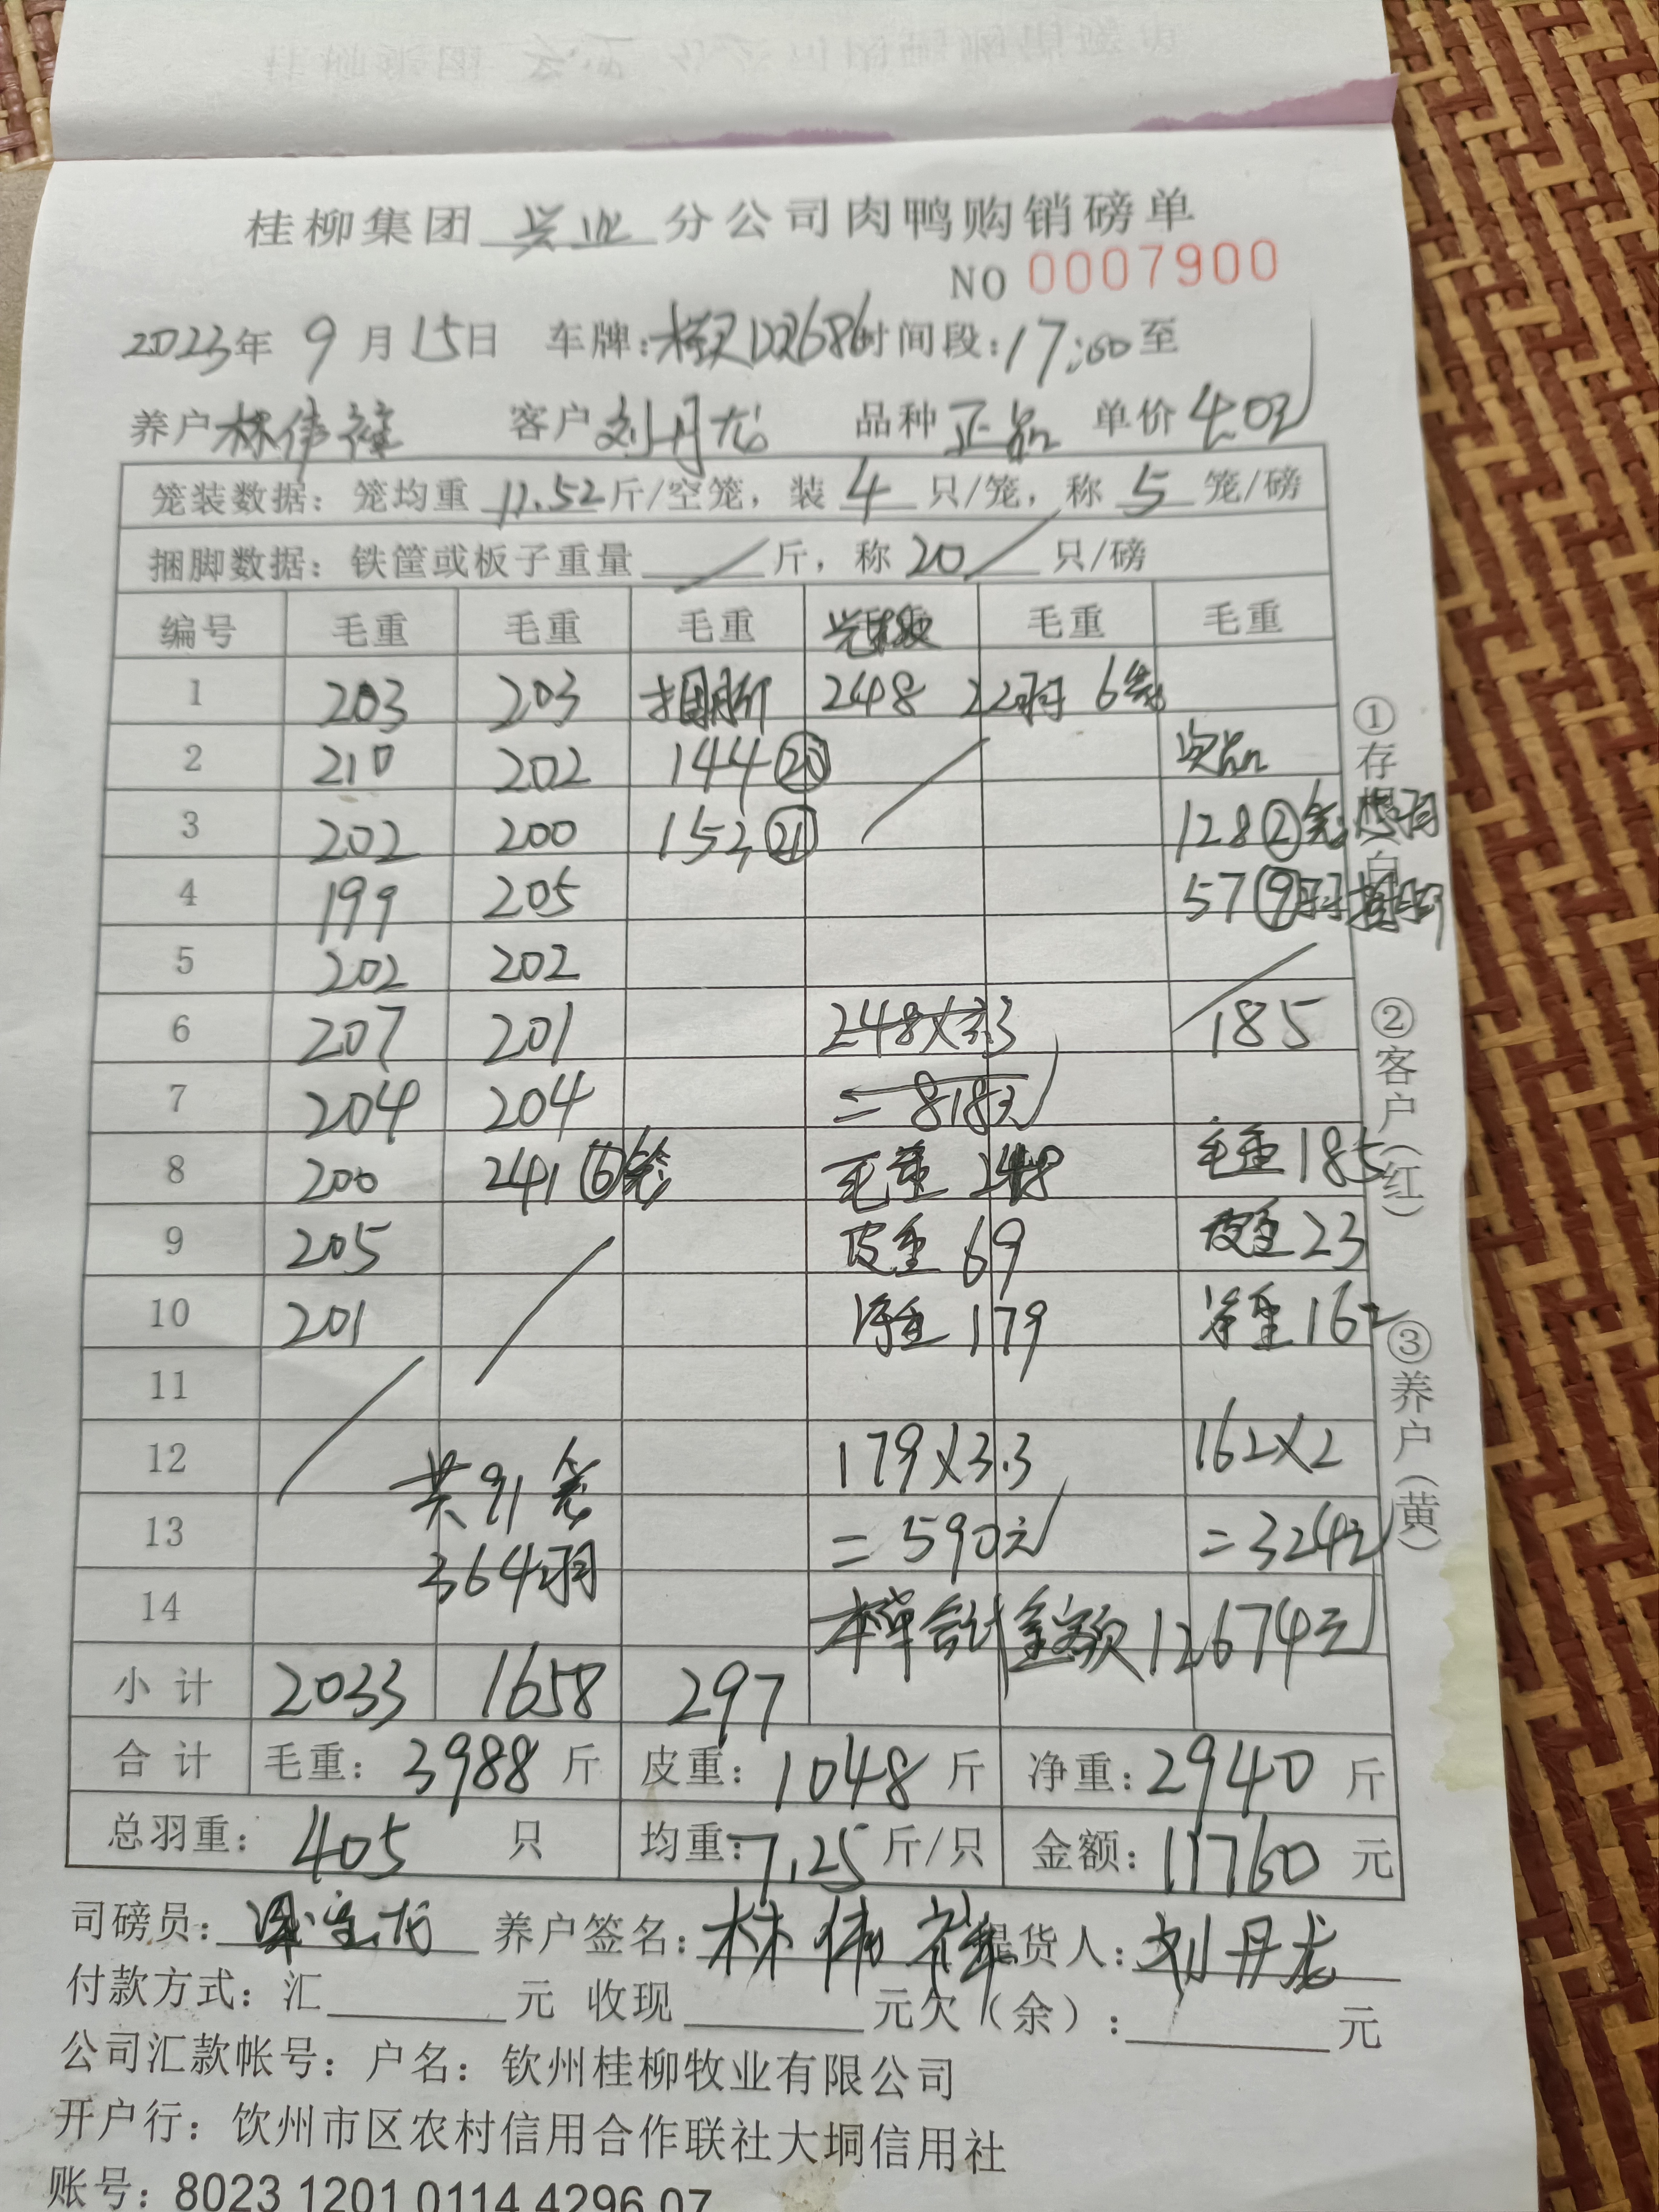 桂柳集团 兴业 分公司肉鸭购销磅单
NO 0007900
2023年 9月15日 车牌: 时间段:17:00至
养户林伟祥 客户刘丹龙 品种正品 单价4.0元
笼装数据: 笼均重 11.52斤/空笼, 装 4 只/笼, 称 5 笼/磅
捆脚数据: 铁筐或板子重量 斤, 称 20 只/磅
编号 毛重 毛重 毛重 毛重 毛重
1 203 203 捆脚 248 22羽 6笼
2 210 202 144 20 次品
3 202 200 152 21 128 2笼
4 199 205 57 9羽捆脚
5 202 202
6 207 201 248×3.3 185
7 204 204 =818元
8 200 241 6笼 毛重 248 毛重185
9 205 皮重 69 皮重23
10 201 净重 179 净重162
11
12 共91笼 179×3.3 162×2
13 364羽 =590元 =324元
14 本单合计金额12674元
小计 2033 1658 297
合计 毛重: 3988 斤 皮重: 1048 斤 净重: 2940 斤
总羽重: 405 只 均重: 7.25 斤/只 金额: 11760 元
司磅员: 养户签名: 林伟祥 提货人: 刘丹龙
付款方式: 汇 元 收现 元欠(余): 元
公司汇款帐号: 户名: 钦州桂柳牧业有限公司
开户行: 钦州市区农村信用合作联社大垌信用社
账号: 8023 1201 0114 4296 07
①存根(白) ②客户(红) ③养户(黄)